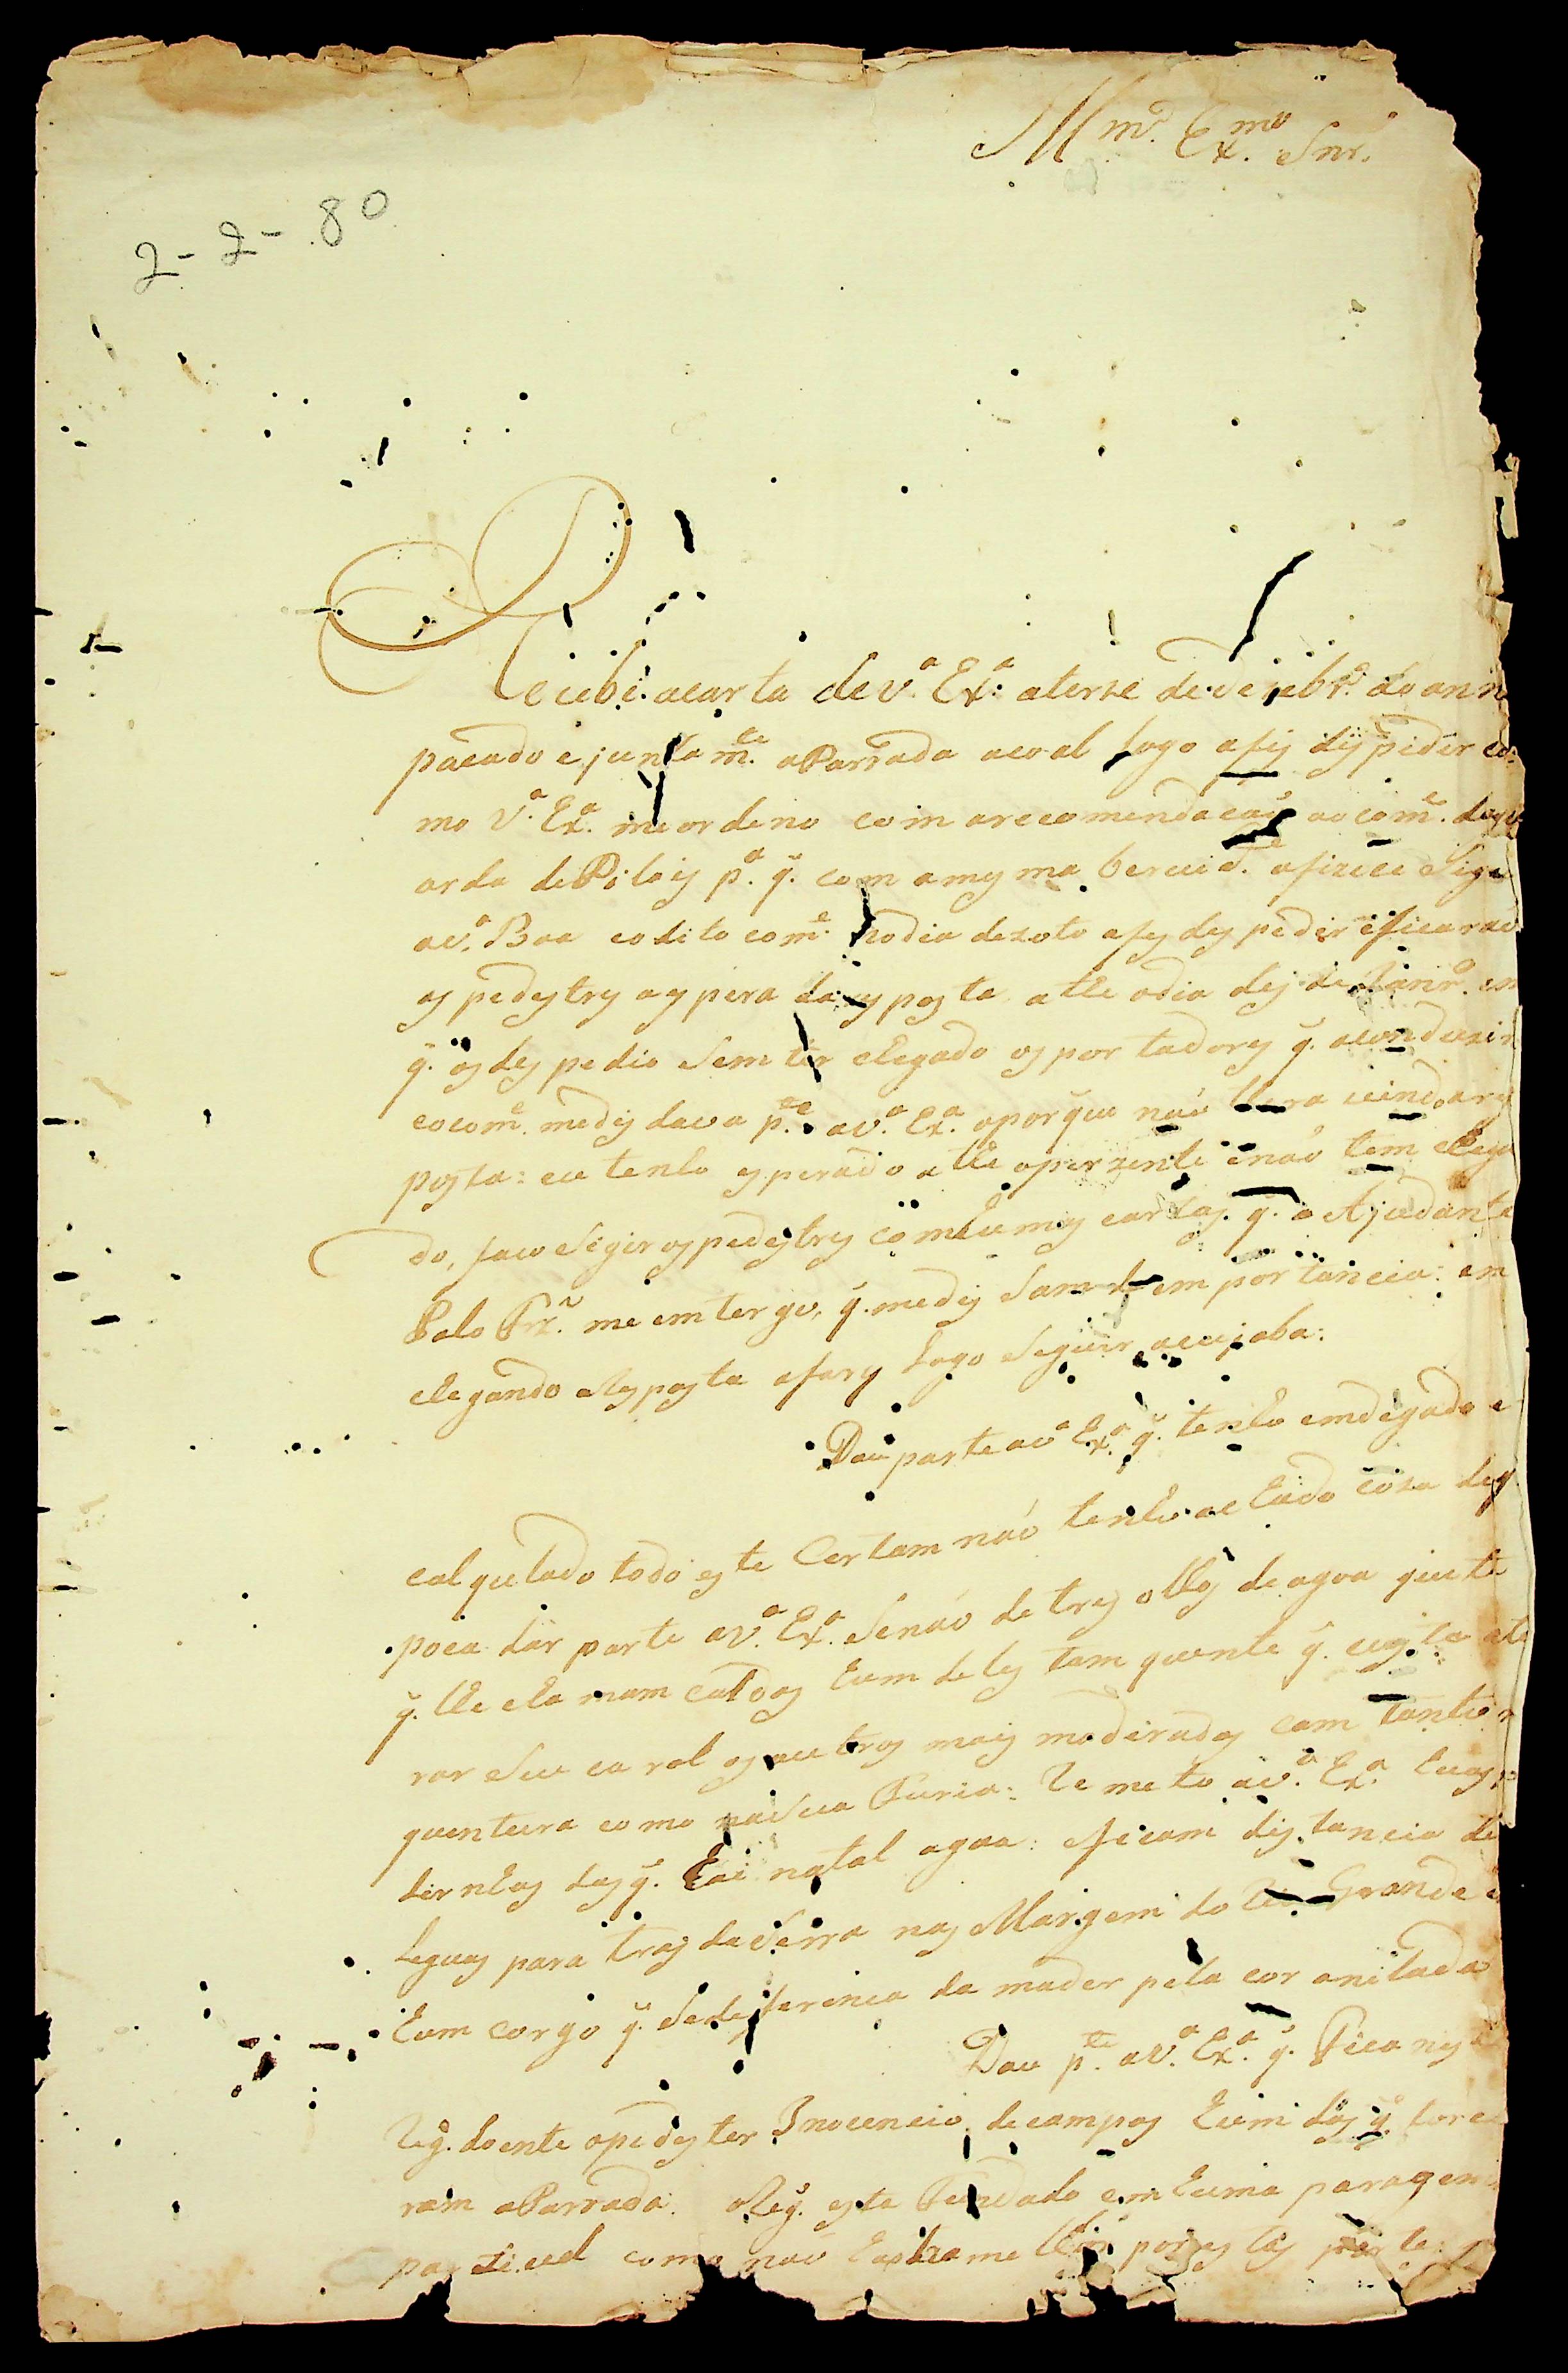 Illmo. Exmo. Snr.
2-2-80
Recebi acarta de v.ª Ex.ª aterze de dezebr.º do ann
pacado e juntam.te aParrada acoal logo afis dispidir co-
mo V.ª Ex.ª me ordeno com arecomendacaõ aocom.e dagu
arda dePilois p.ª q̃. com amesma berevid.e afizece Sigir
av.ª Boa eo dito com.e nodia dezoto afes despedir eficaraõ
os pedestres aespera da resposta athe odia des de Janr.º em
q̃. os despedio Sem ter chegado os portadores q̃. aconduzir
eocom.e medis dava p.te av.ª Ex.ª oporque naõ vindo a res
posta: eu tenho esperado athe operzente enaõ tem chega
do, faco Sigir ospedestres com humas cartas q̃. o Ajudante
Palo Frz.̃ me emtergo, q̃. medis Sam de emportancia: em
chegando a resposta afarei logo Seguir acuiaba:
Dou parte av.ª Ex.ª q̃. tenho emdegado e
calqulado todo este Certam naõ tenho achado coza de q̃
poca dar parte av.ª Ex.ª Senaõ de tres olhos de agoa quente
q̃. lhe chamam Caldas hum deles tam quente q̃. custa ate
rar Seu calor os outros mais moderados com tanta
quentura como naSua Furia: Remeto av.ª Ex.ª huas pe
dernhas das q̃. hai natal agoa: eficam distancia de
leguas para tras da Serra nas Margem do Rio Grande e
hum corgo q̃. Sedeferenca da mader pela cor anilada
Dou p.te av.ª Ex.ª q̃. Fica nest
Reg.º doente opedester Inocencio de campos hum dos q̃. torce
ram aParrada. oReg.º esta Fundado em huma paragem
pasivel como naõ por estas parte